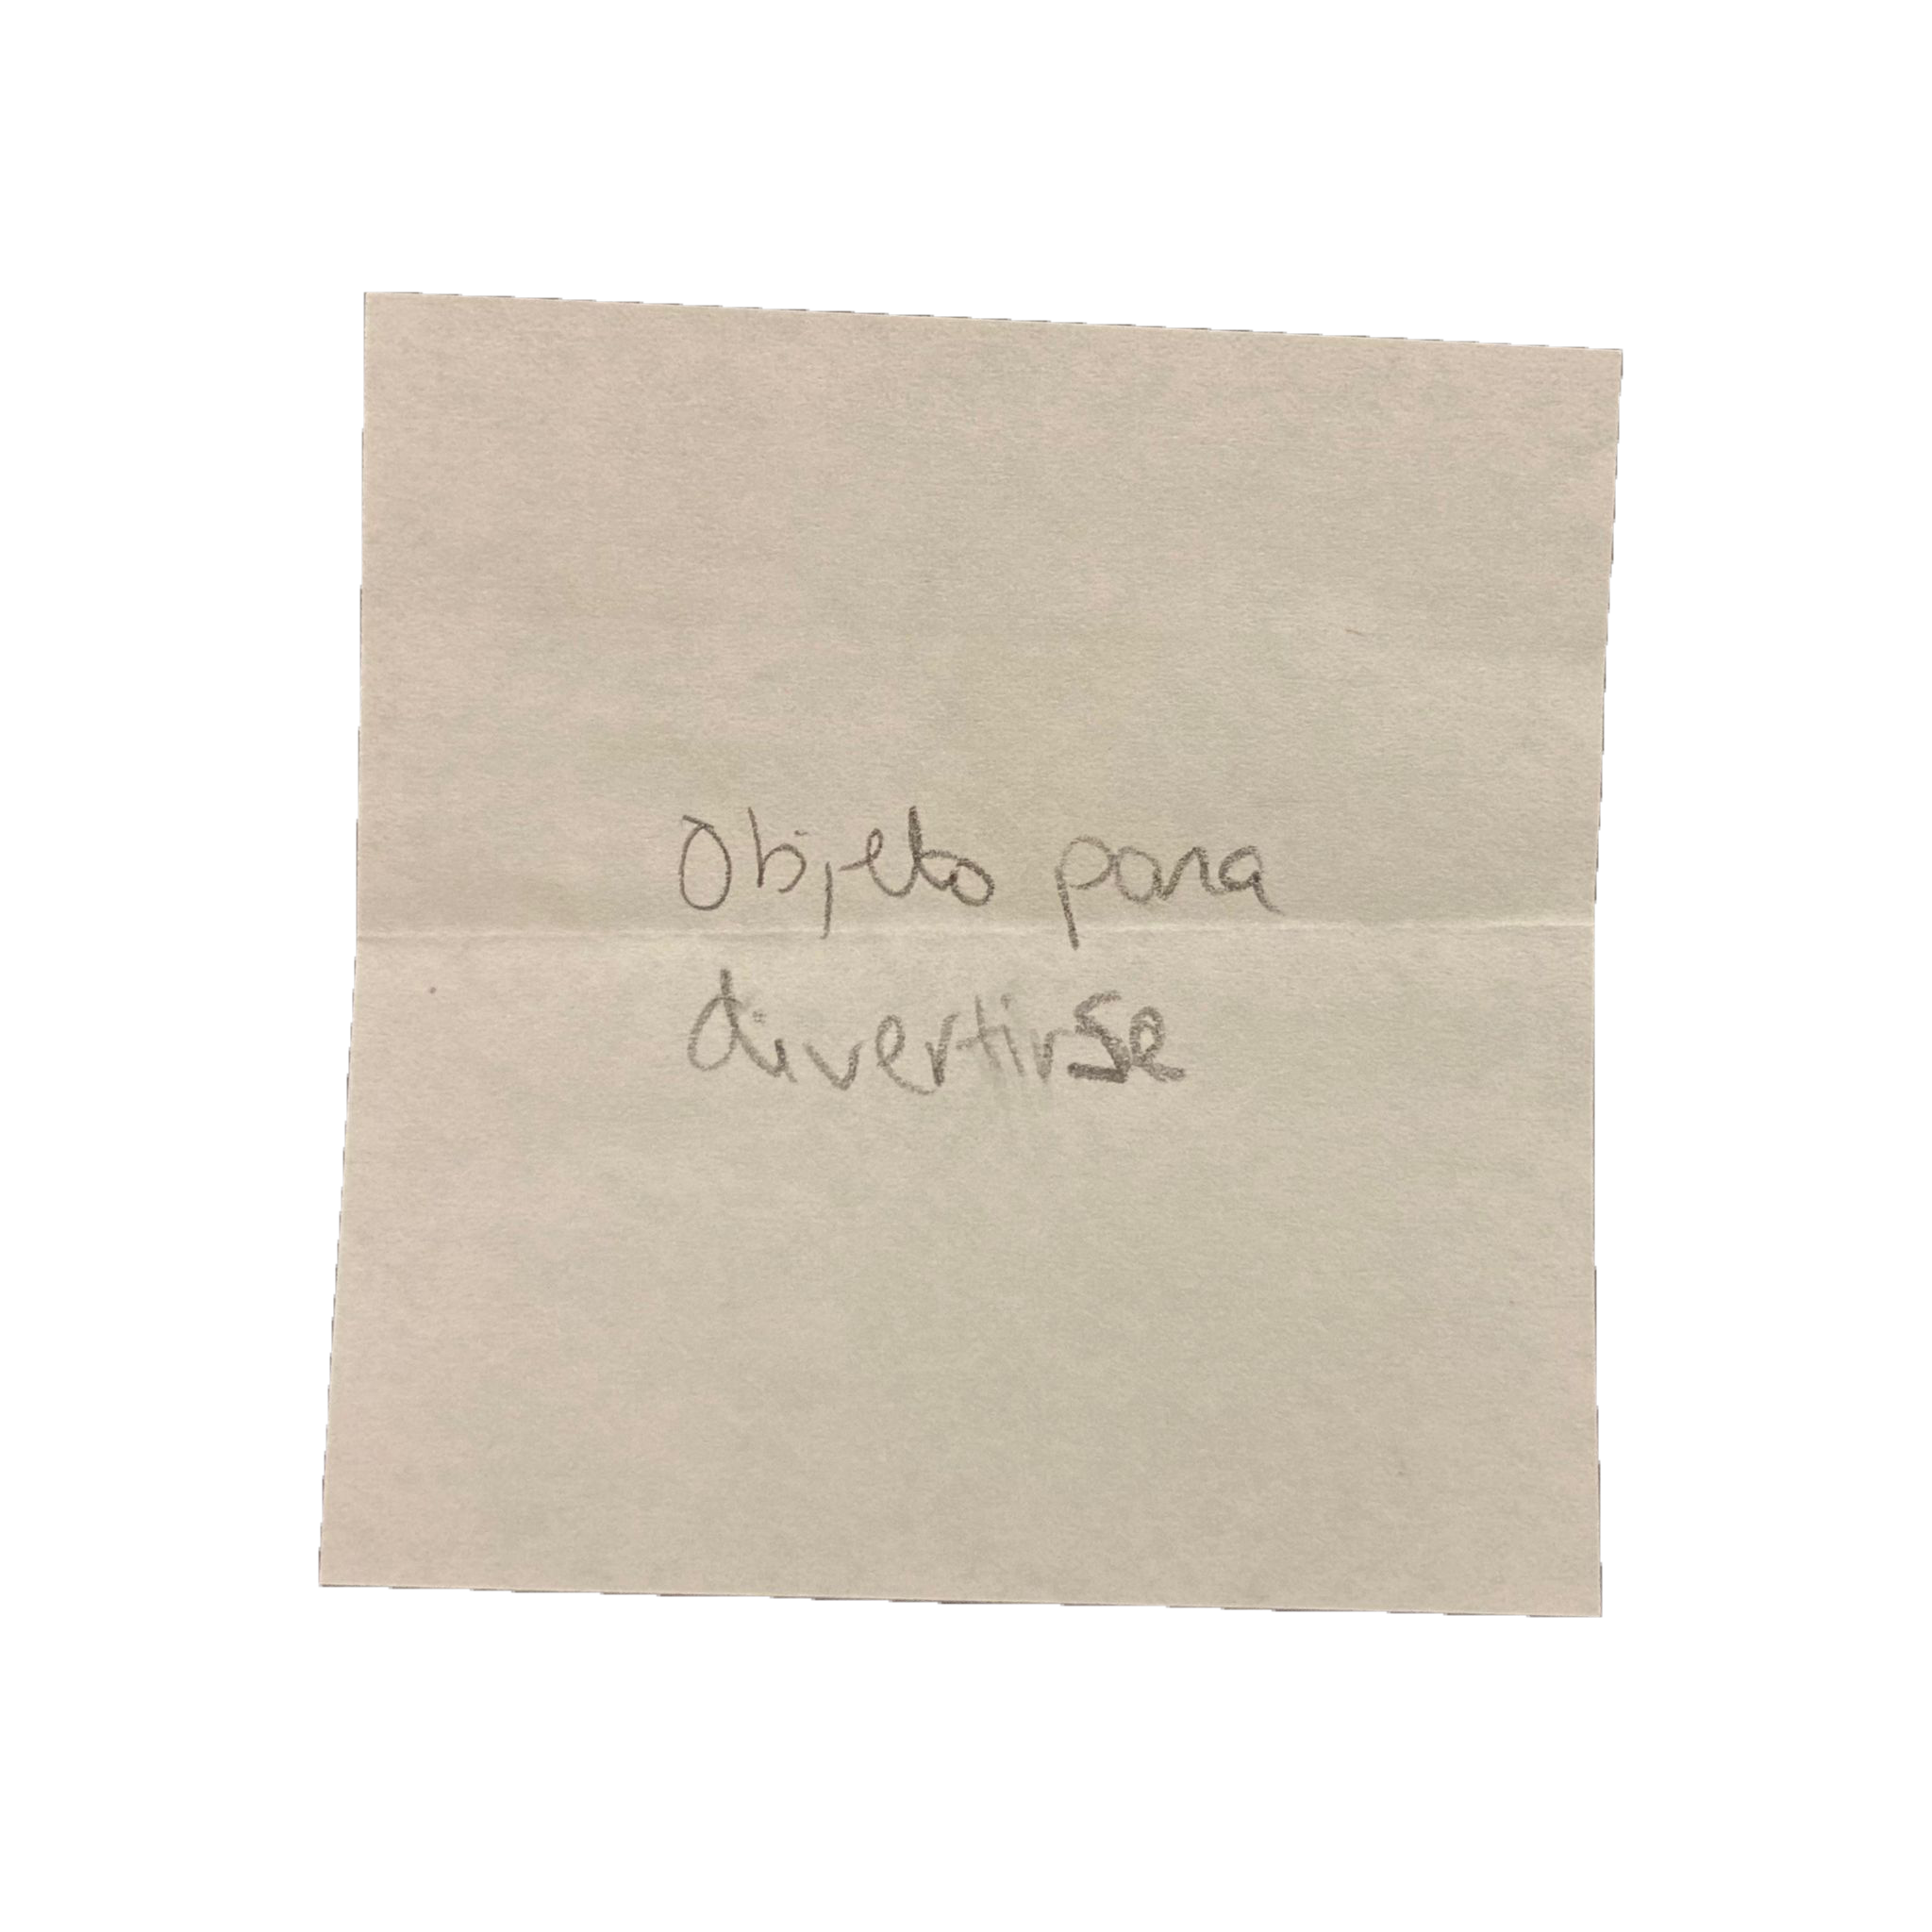 Objeto para
divertirse